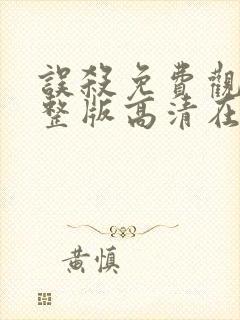 誤殺免費觀
整版高清在
黃慎